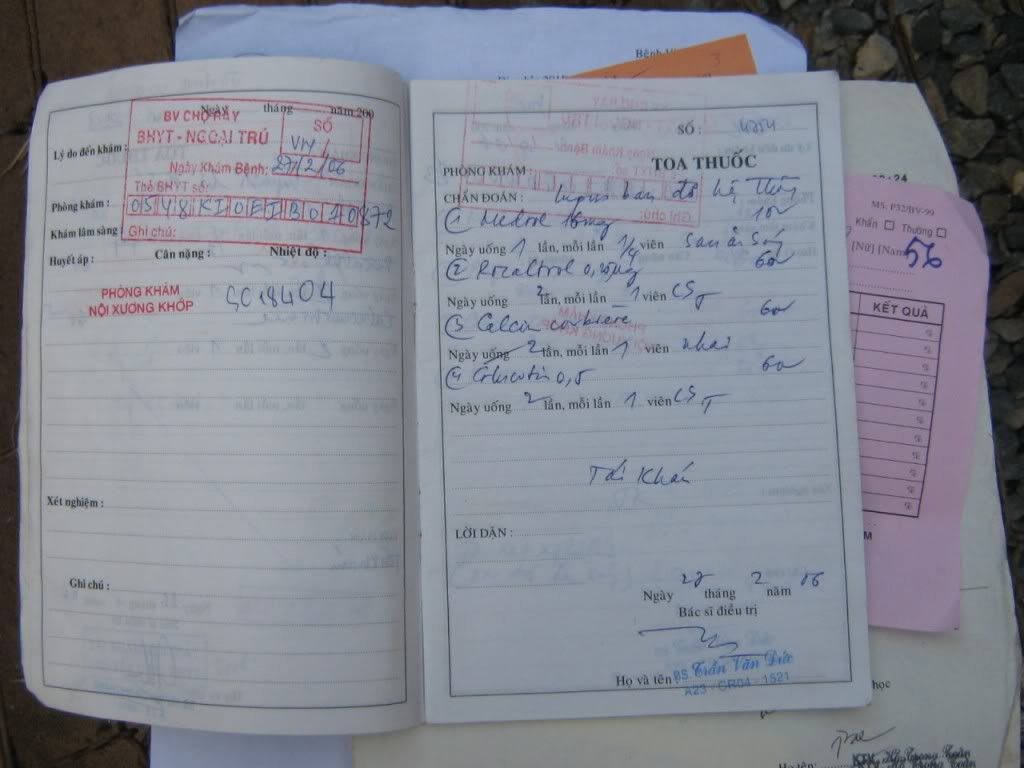 Bệnh
3
Ngày tháng năm 200
BV CHỢ RẪY
BHYT - NGOẠI TRÚ
SỐ
Lý do đến khám :
Ngày Khám Bệnh: 27/2/06
Thẻ BHYT số:
Phòng khám :
0548 KIOEIB010872
Khám lâm sàng :
Ghi chú:
Huyết áp : Cân nặng : Nhiệt độ :
PHÒNG KHÁM
NỘI XƯƠNG KHỚP
Xét nghiệm :
Ghi chú :
SỐ :
TOA THUỐC
PHÒNG KHÁM :
CHẨN ĐOÁN : Lupus ban đỏ hệ thống
1 Medrol 16mg 10v
Ngày uống 1 lần, mỗi lần 1/4 viên sau ăn sáng
2 Rocaltrol 0,25µg 60v
Ngày uống 2 lần, mỗi lần 1 viên
3 Calcium corbiere 60v
Ngày uống 2 lần, mỗi lần 1 viên nhai
4 0,5 60v
Ngày uống 2 lần, mỗi lần 1 viên
Tái khám
LỜI DẶN :
Ngày 27 tháng 2 năm 06
Bác sĩ điều trị
Họ và tên BS Trần Văn Đức
A23 - CR04 - 1521
MS. P32/BV-99
Khẩn Thường
[Nữ] [Nam] 56
KẾT QUẢ
học
Họ tên:
KTV